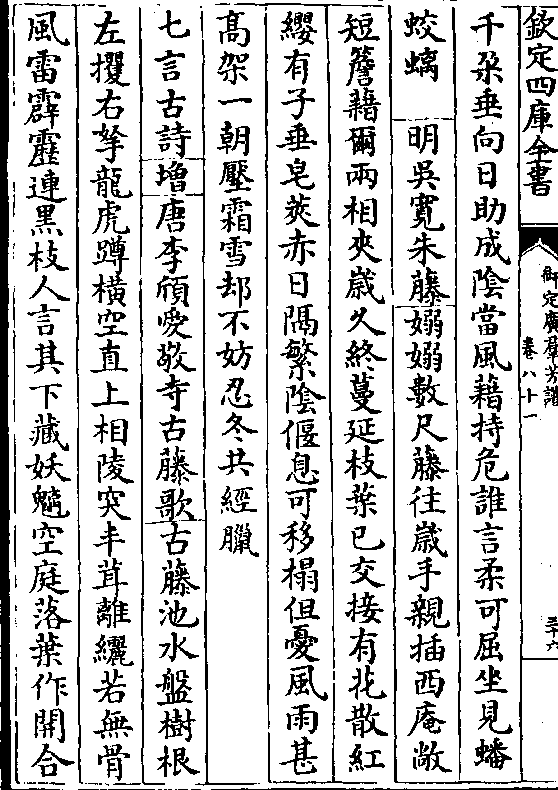 欽定四庫全書
御定廣羣芳譜
卷八十一
三十六
千朶垂向日助成陰當風藉持危誰言柔可屈坐見蟠
蛟螭　明吳寛朱藤嫋嫋數尺藤往嵗手親插西庵敞
短簷藉爾兩相夾嵗久終蔓延枝葉已交接有花散紅
纓有子垂皂莢赤日隔繁陰偃息可移榻但憂風雨甚
髙架一朝壓霜雪却不妨忍冬共經臘
七言古詩增唐李頎愛敬寺古藤歌古藤池水盤樹根
左攫右拏龍虎蹲橫空直上相陵突丰茸離纚若無骨
風雷霹靂連黒枝人言其下藏妖魑空庭落葉作開合